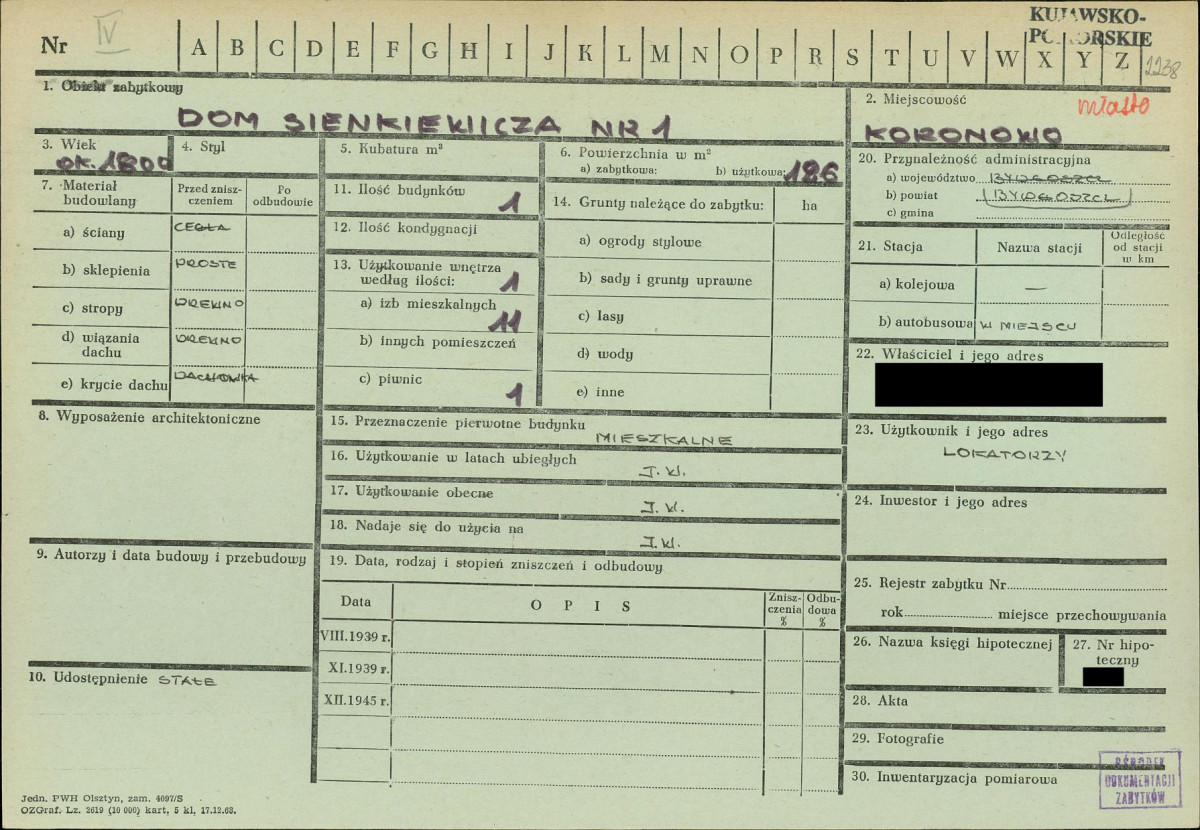 KUJAWSKO-
POMORSKIE
Nr IV A B C D E F G H I J K L M N O P R S T U V W X Y Z 2238
1. Obiekt zabytkowy
DOM SIENKIEWICZA NR 1
2. Miejscowość miasto
KORONOWO
3. Wiek
ok. 1800
4. Styl
5. Kubatura m³
6. Powierzchnia w m²
a) zabytkowa: b) użytkowa: 186
7. Materiał budowlany
Przed znisz-
czeniem
Po
odbudowie
a) ściany CEGŁA
b) sklepienia PROSTE
c) stropy DREWNO
d) wiązania
dachu DREWNO
e) krycie dachu DACHÓWKA
8. Wyposażenie architektoniczne
9. Autorzy i data budowy i przebudowy
10. Udostępnienie STAŁE
11. Ilość budynków
1
12. Ilość kondygnacji
13. Użytkowanie wnętrza
według ilości: 1
a) izb mieszkalnych
11
b) innych pomieszczeń
c) piwnic
1
14. Grunty należące do zabytku: ha
a) ogrody stylowe
b) sady i grunty uprawne
c) lasy
d) wody
e) inne
15. Przeznaczenie pierwotne budynku
MIESZKALNE
16. Użytkowanie w latach ubiegłych
J.W.
17. Użytkowanie obecne
J.W.
18. Nadaje się do użycia na
J.W.
19. Data, rodzaj i stopień zniszczeń i odbudowy
Data OPIS
Znisz-
czenia
%
Odbu-
dowa
%
VIII.1939 r.
XI.1939 r.
XII.1945 r.
20. Przynależność administracyjna
a) województwo BYDGOSZCZ
b) powiat BYDGOSZCZ
c) gmina
21. Stacja Nazwa stacji
Odległość
od stacji
w km
a) kolejowa —
b) autobusowa W MIEJSCU
22. Właściciel i jego adres
23. Użytkownik i jego adres
LOKATORZY
24. Inwestor i jego adres
25. Rejestr zabytku Nr
rok miejsce przechowywania
26. Nazwa księgi hipotecznej
27. Nr hipo-
teczny
28. Akta
29. Fotografie
30. Inwentaryzacja pomiarowa
OŚRODEK
DOKUMENTACJI
ZABYTKÓW
Jedn. PWH Olsztyn, zam. 4097/S
OZGraf. Lz. 2619 (10 000) kart, 5 kl, 17.12.63.